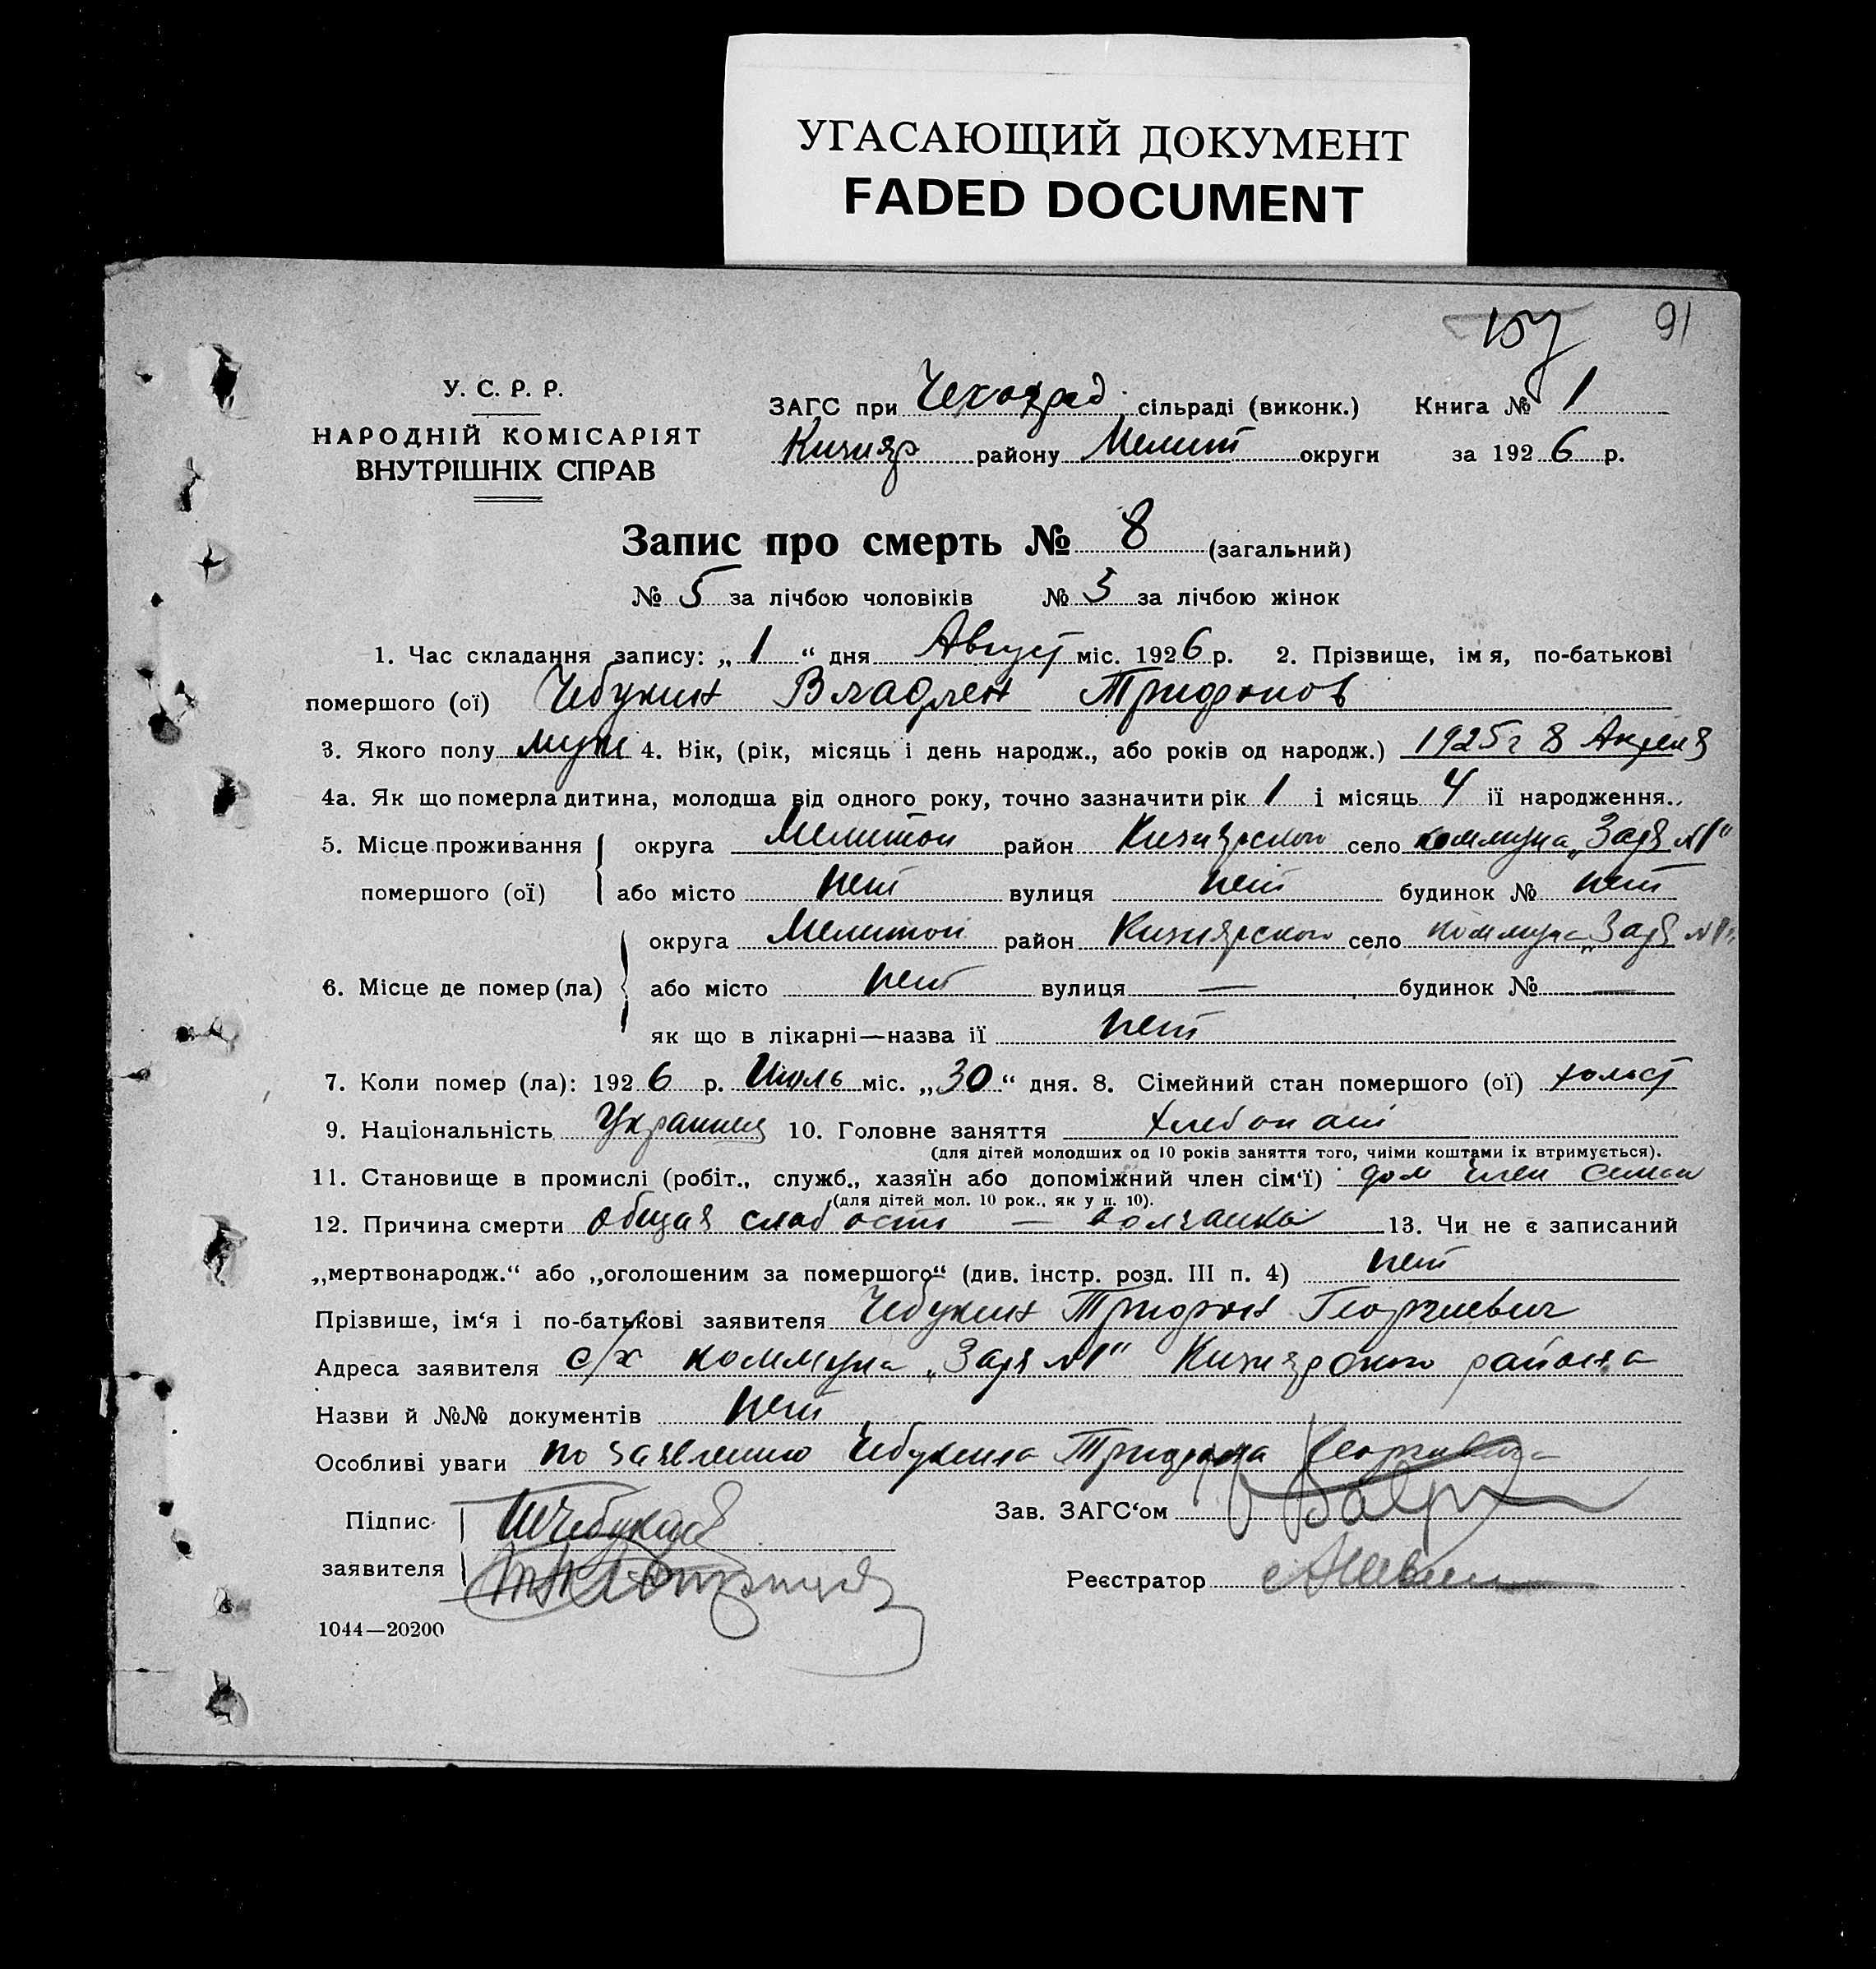 УГАСАЮЩИЙ ДОКУМЕНТ
FADED DOCUMENT
91
У. С. Р. Р.
НАРОДНІЙ КОМІСАРІЯТ
ВНУТРІШНІХ СПРАВ
ЗАГС при Чехоград сільраді (виконк.) Книга № 1
Кизияр району Мелит округи за 1926 р.
Запис про смерть № 8 (загальний)
№ 5 за лічбою чоловіків № 3 за лічбою жінок
1. Час складання запису: „ 1 “ дня Август міс. 1926 р. 2. Прізвище, імя, по-батькові
помершого (ої) Чебукин Владлен Трифонов
3. Якого полу муж 4. Вік, (рік, місяць і день народж., або років од народж.) 1925 г 8 Апреля
4а. Як що померла дитина, молодша від одного року, точно зазначити рік 1 і місяць 4 її народження.
5. Місце проживання округа Мелитоп район Кизиярского село коммуна „Заря №1“
помершого (ої) або місто нет вулиця нет будинок № нет
округа Мелитоп район Кизиярского село коммуна „Заря №1“
6. Місце де помер (ла) або місто нет вулиця — будинок № —
як що в лікарні—назва її нет
7. Коли помер (ла): 1926 р. Июль міс. „30“ дня. 8. Сімейний стан помершого (ої) холост
9. Національність Украинец 10. Головне заняття хлебопаш
(для дітей молодших од 10 років заняття того, чиїми коштами їх втримується).
11. Становище в промислі (робіт., служб., хазяїн або допоміжний член сім‘ї) пом член семьи
(для дітей мол. 10 рок., як у п. 10).
12. Причина смерти общая слабость — 13. Чи не є записаний
„мертвонародж.“ або „оголошеним за помершого“ (див. інстр. розд. III п. 4) нет
Прізвише, ім‘я і по-батькові заявителя Чебукин Трифон Георгиевич
Адреса заявителя с/х коммуна „Заря №1“ Кизиярского района
Назви й №№ документів нет
Особливі уваги по заявлению Чебукина Трифона Георгиевича
Підпис Зав. ЗАГС‘ом
заявителя Реєстратор
1044—20200